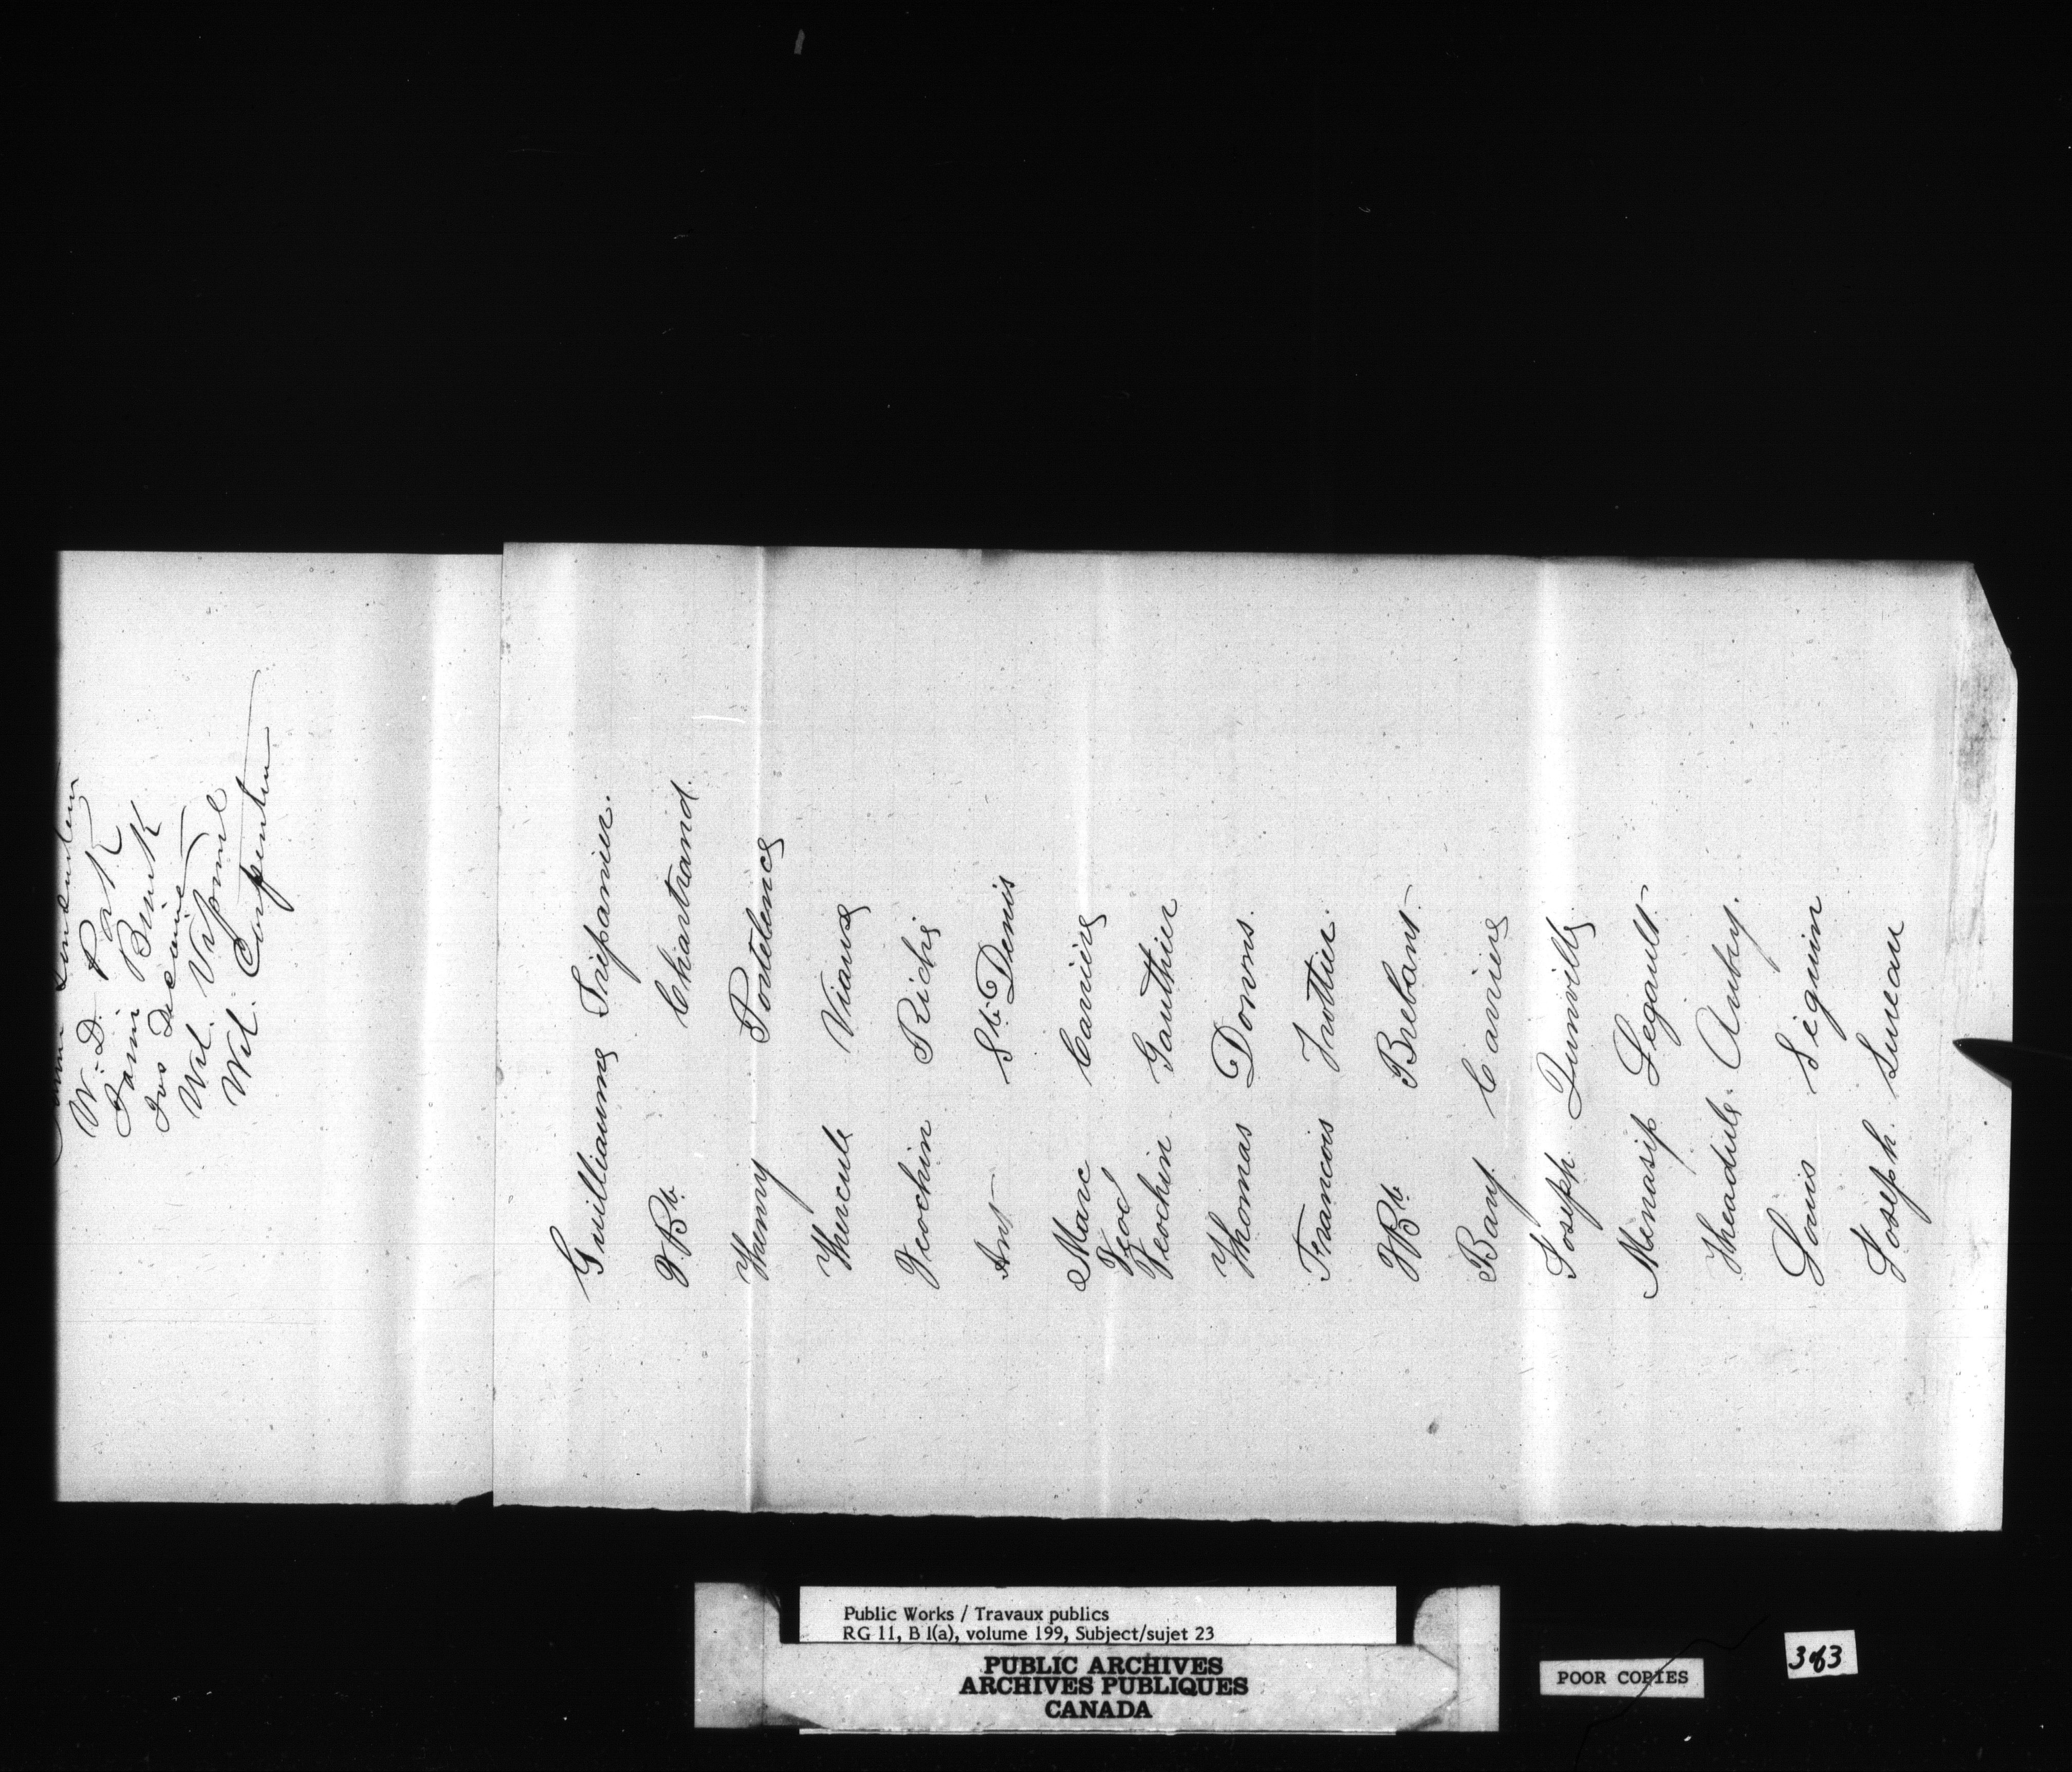 W. D. Park
Brink
Jos
Wil.
Wil. Carpenter
Guilliaume Tripanier.
J. Bte Chartrand.
Hunry Portelence
Hercule Viause
Jeochin Riche
Ant St. Denis
Marc Carriere
Jeod
Jeochin Gauthier
Thomas Downs.
Francois Trottier.
J Bte Brebant.
Bany. Carriere
Joseph Quinville
Menasip Legault
Theadule. Aubry.
Louis Séguin
Joseph. Sureau
Public Works / Travaux publics
RG 11, B 1(a), volume 199, Subject/sujet 23
PUBLIC ARCHIVES
ARCHIVES PUBLIQUES
CANADA
POOR COPIES
3of3